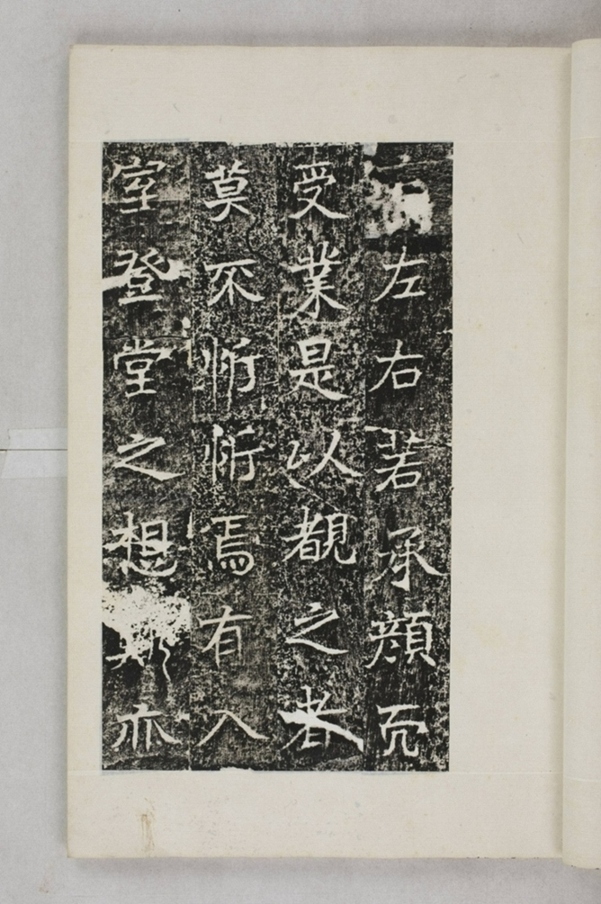 左右若承顏而
受業是以覩之者
莫不忻忻焉有入
室登堂之想斯亦